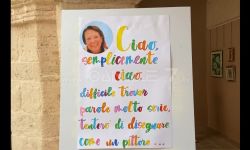 Ciao,
semplicemente
ciao,
difficile trovar
parole molto serie,
tenterò di disegnare
come un pittore ...